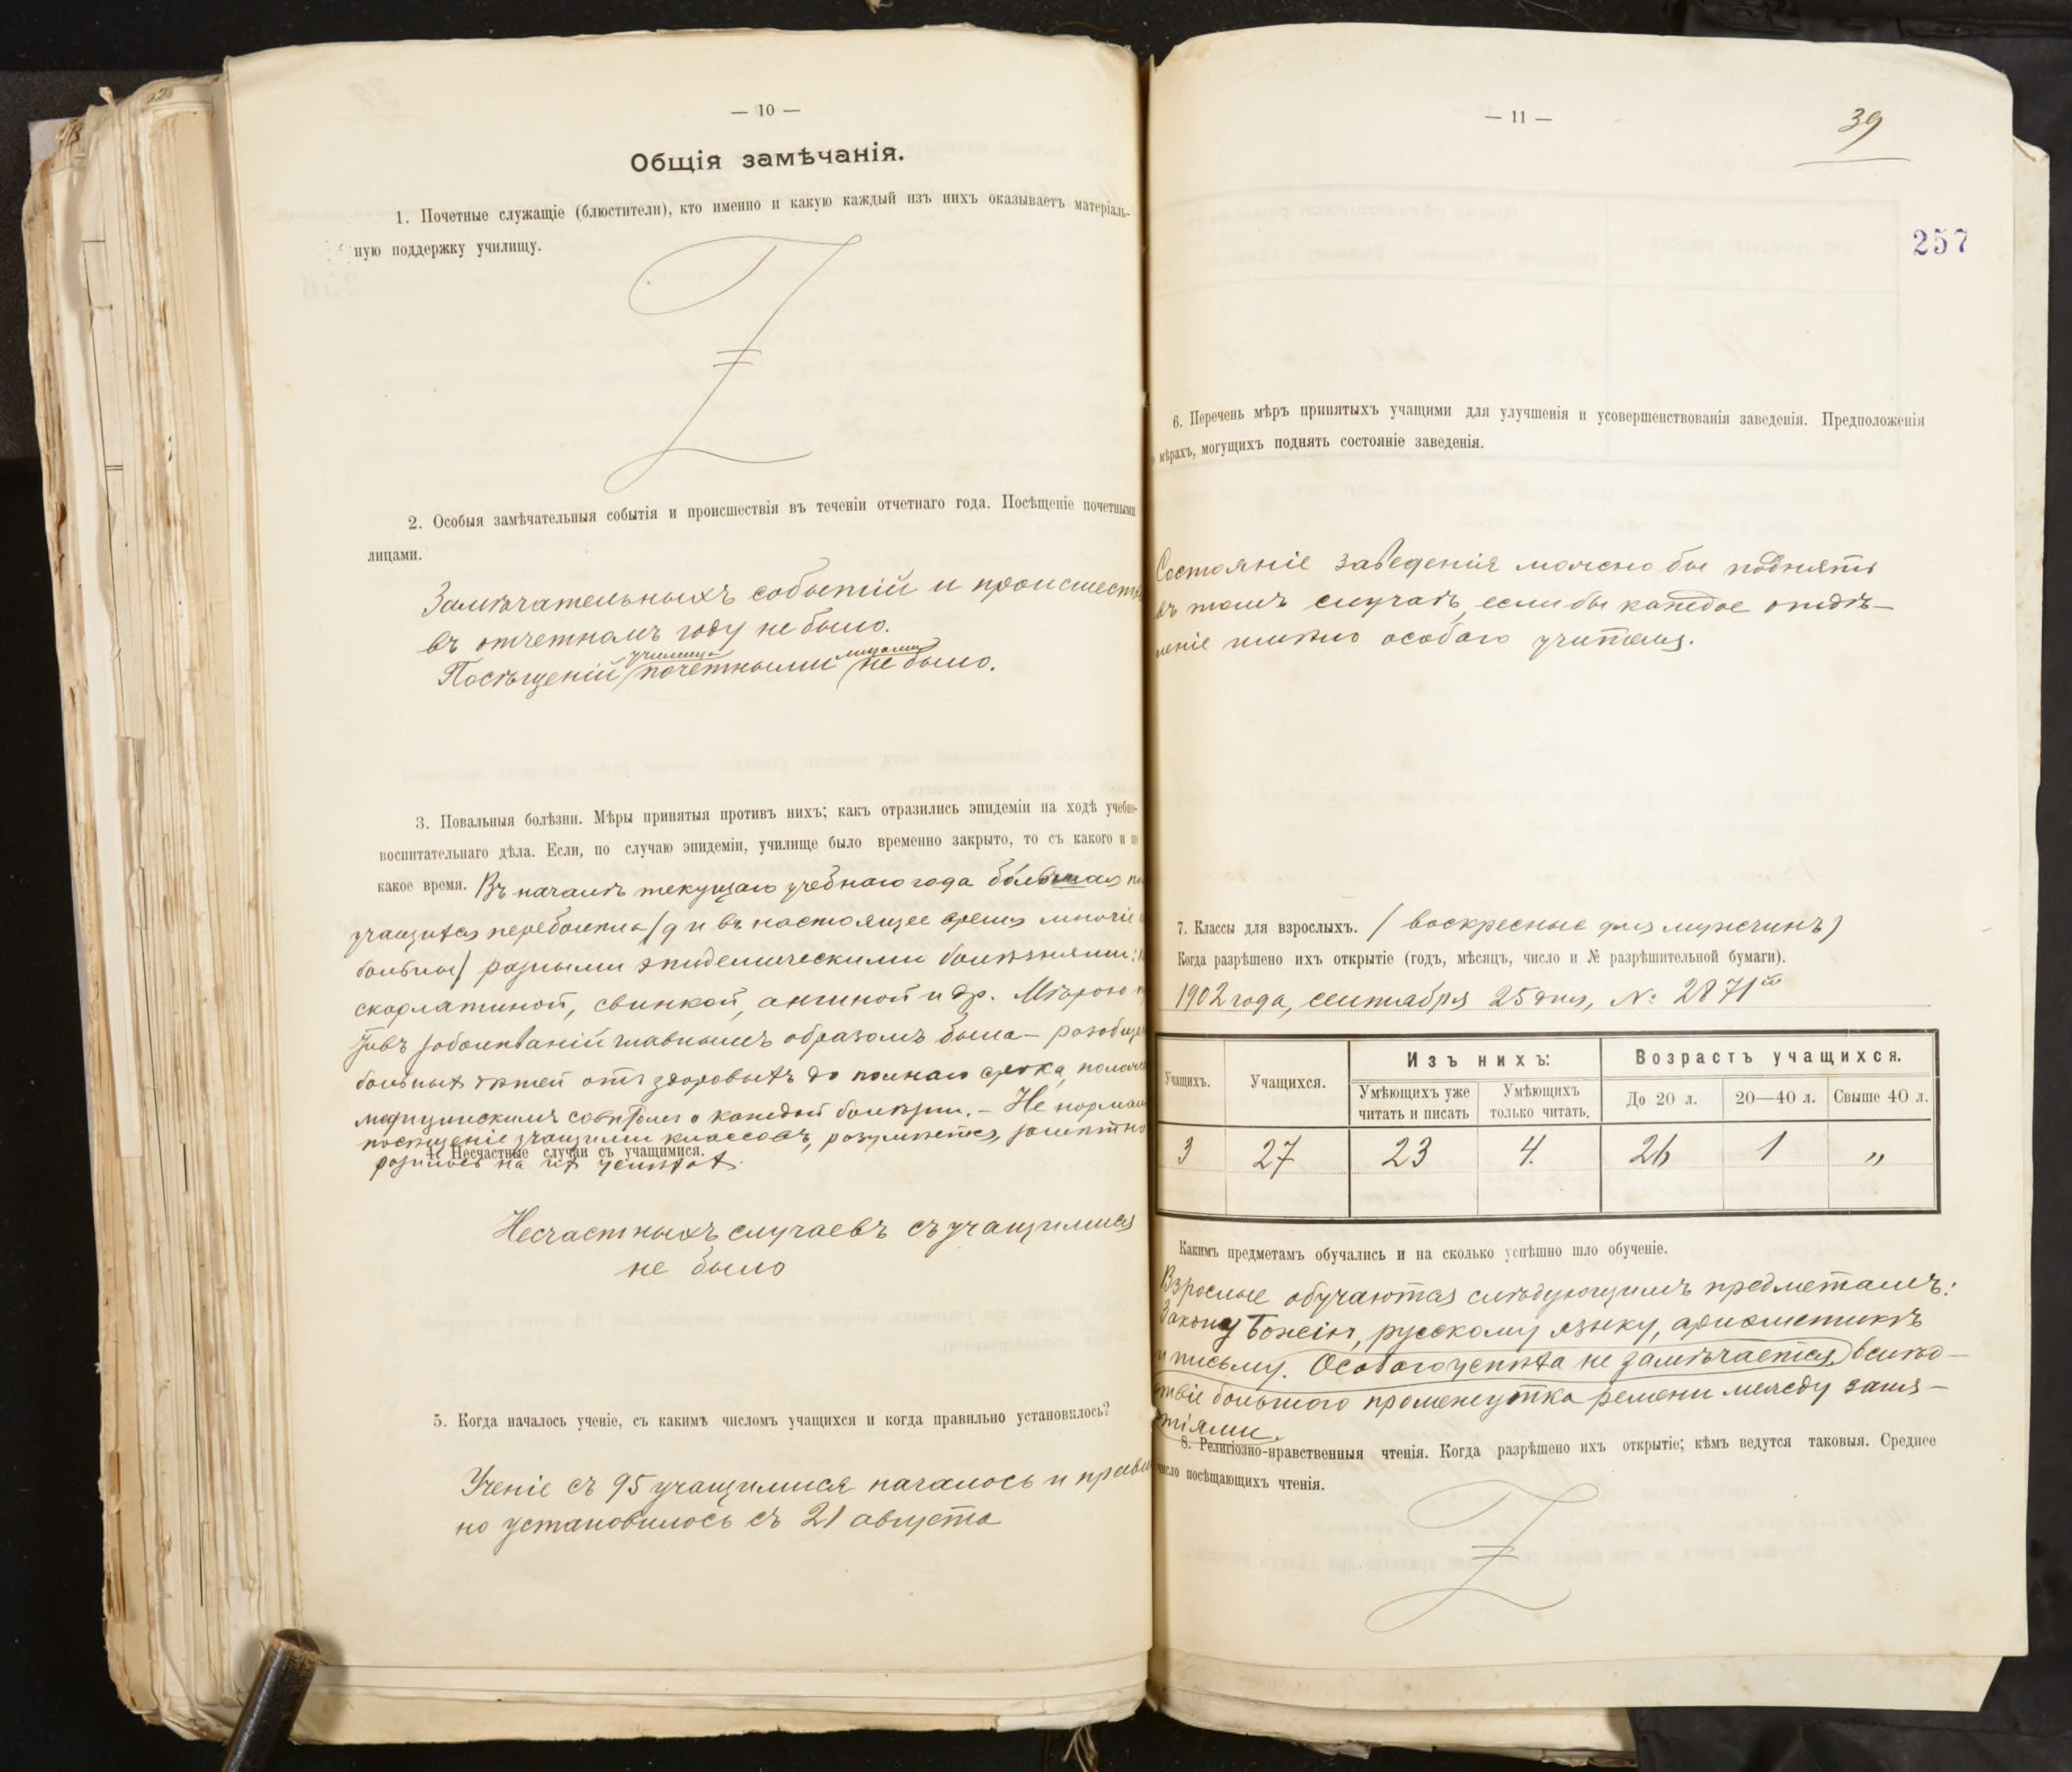 — 10 —
Общія замѣчанія.
1. Почетные служащіе (блюстители), кто именно и какую каждый изъ нихъ оказываетъ матеріаль-
ную поддержку училищу.
2. Особыя замѣчательныя событія и происшествія въ теченіи отчетнаго года. Посѣщеніе почетными
лицами.
Замѣчательныхъ событій и происшеств
въ отчетномъ году не было.
училища лицами
Посѣщеній почетными не было.
3. Повальныя болѣзни. Мѣры принятыя противъ нихъ; какъ отразились эпидеміи на ходѣ учебно-
воспитательнаго дѣла. Если, по случаю эпидеміи, училище было временно закрыто, то съ какого и по
какое время. Въ началѣ текущаго учебнаго года большая
учащихся переболѣла (да и въ настоящее время многіе
больны) разными эпидемическими болѣзнями:
скарлатиной, свинкой, ангиной и др. Мѣрою
тивъ заболѣваній главнымъ образомъ была — разобще
больныхъ дѣтей отъ здоровыхъ до полнаго срока,
медицинскимъ совѣтомъ о каждой болѣзни. — Не нормаль
посѣщеніе учащими классовъ, разумѣется, замѣтно
4. Несчастные случаи съ учащимися.
разилось на ихъ успѣхахъ.
Несчастныхъ случаевъ съ учащимися
не было
5. Когда началось ученіе, съ какимъ числомъ учащихся и когда правильно установилось?
Ученіе съ 95 учащимися началось и правиль
но установилось съ 21 августа
— 11 —
39
257
6. Перечень мѣръ принятыхъ учащими для улучшенія и усовершенствованія заведенія. Предположенія
мѣрахъ, могущихъ поднять состояніе заведенія.
Состояніе заведенія можно бы поднять
въ томъ случаѣ, если бы каждое отдѣ-
леніе имѣло особаго учителя.
7. Классы для взрослыхъ. (воскресные для мужчинъ)
Когда разрѣшено ихъ открытіе (годъ, мѣсяцъ, число и № разрѣшительной бумаги).
1902 года, сентября 25 дня, №: 2871й
Учащихъ. Учащихся. Изъ нихъ: Возрастъ учащихся.
Умѣющихъ уже читать и писать Умѣющихъ только читать. До 20 л. 20—40 л. Свыше 40 л.
3 27 23 4. 26 1 „
Какимъ предметамъ обучались и на сколько успѣшно шло обученіе.
Взрослые обучаются слѣдующимъ предметамъ:
Закону Божію, русскому языку, ариѳметикѣ
и письму. Особаго успѣха не замѣчается, вслѣд-
ствіе большаго промежутка времени между заня-
тіями.
8. Религіозно-нравственныя чтенія. Когда разрѣшено ихъ открытіе; кѣмъ ведутся таковыя. Среднее
число посѣщающихъ чтенія.